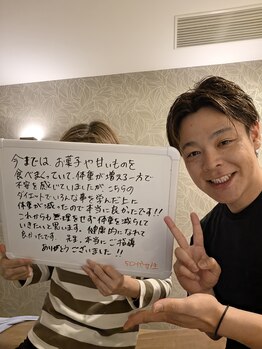 今までは、お菓子や甘いものを
食べまくっていて、体重が増える一方で
不安を感じていましたが こちらの
ダイエットでいろんな事を学んだ上に
体重が減ったので本当に良かったです!!
これからも無理をせず体重を減らして
いきたいと思います。健康的になれて
良かったです 先生、本当にご指導
ありがとうございました!!
50代女性